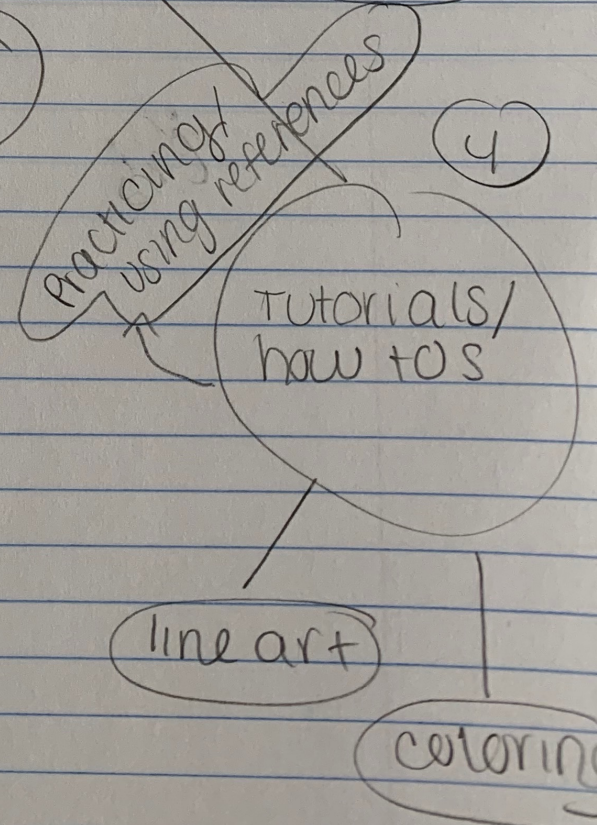 Practicing/
using references
4
Tutorials/
how tos
line art
colorin